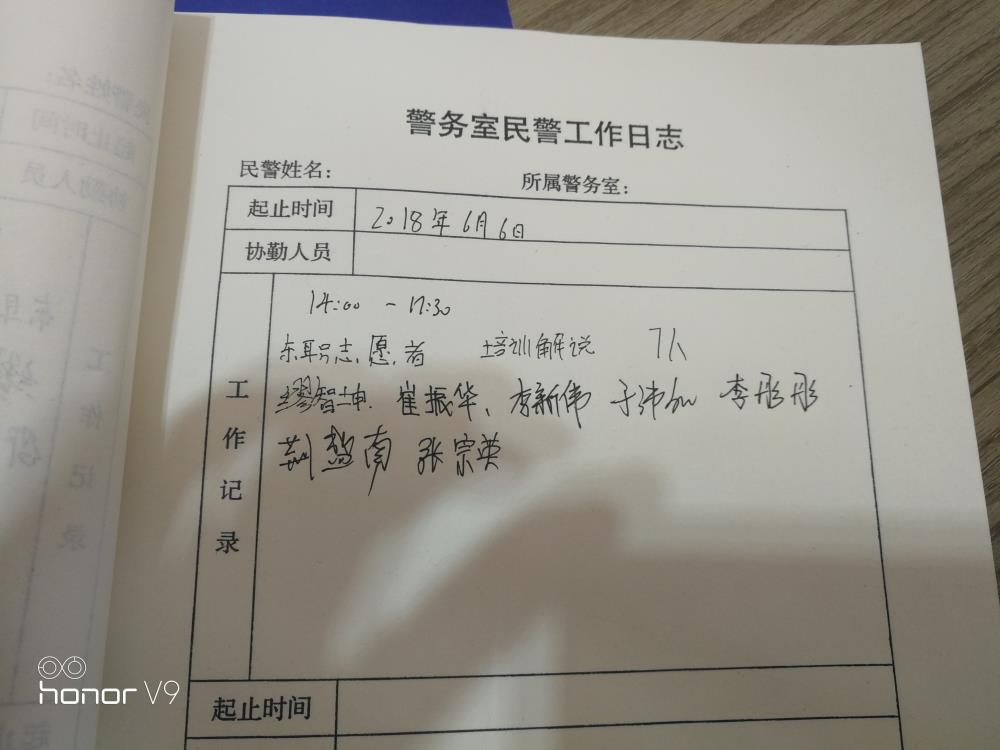 警务室民警工作日志
民警姓名： 所属警务室：
起止时间 2018年6月6日
协勤人员
工作记录
14:00 - 17:30
东职志愿者 培训解说 7人
缪智坤、崔振华、李新伟 李彤彤
荆 南 张宗英
起止时间
honor V9